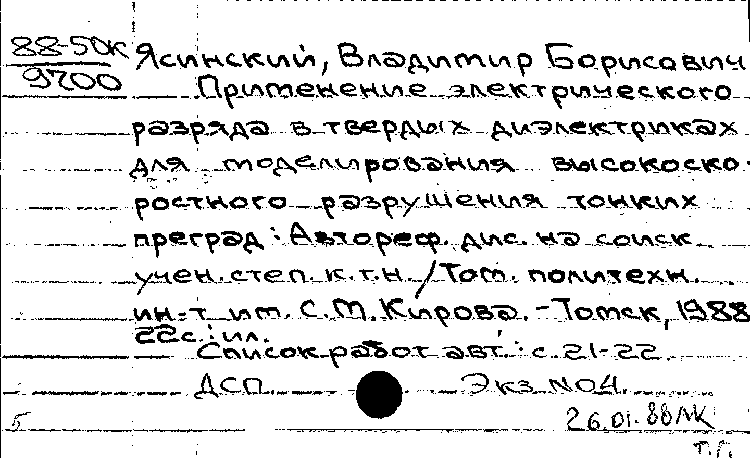 88-50к Ясинский, Владимир Борисович
9700 Применение электрического
разряда в твердых диэлектриках
для моделирования высокоско-
ростного разрушения тонких
преград : Автореф. дис. на соиск
учен. степ. к.т.н. / Том. политехн.
ин-т им. С.М. Кирова. - Томск, 1988
22с.: ил.
Список работ авт.: с. 21-22
ДСП Экз №04.
5 26.01.88